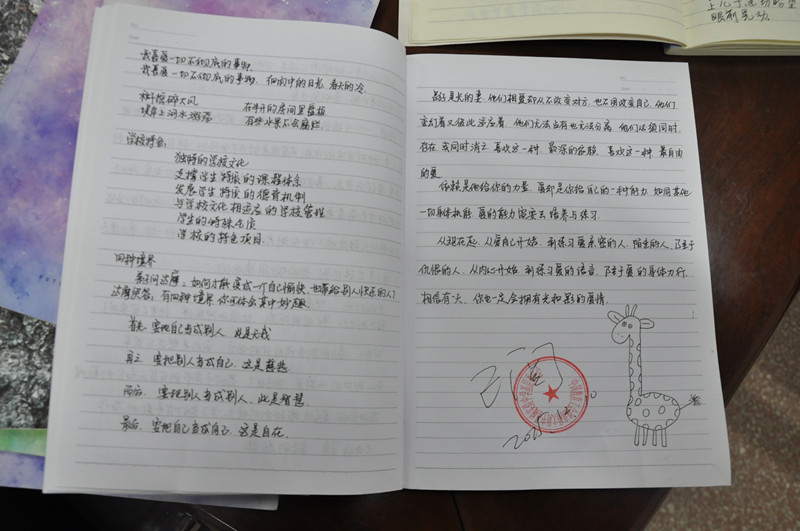 我喜爱一切不彻底的事物.
我喜爱一切不彻底的事物. 细雨中的日光, 春天的冷.
秋千惊碎大风
堤岸上河水游荡
在半开的房间里盘桓
有些水果不会腐烂.
学校特色:
独特的学校文化
支撑学生特长的课程体系
发展学生特长的德育机制
与学校文化相适应的学校管理
学生的特殊气质
学校的特色项目.
四种境界
弟子问达摩: 如何才能变成一个自己愉快, 也带给别人快乐的人?
达摩笑答: 有四种境界 你可体会其中妙趣.
首先. 要把自己当成别人. 此是无我
再之. 要把别人当成自己. 这是慈悲
而后. 要把别人当成别人, 此是智慧
最后. 要把自己当成自己. 这是自在.
影子是光的妻, 他们相爱却从不改变对方, 也不用改变自己, 他们
变幻着又彼此
着, 他们无法占有也无法分离, 他们必须同时
存在 或同时消亡 喜欢这一种. 最深的依赖, 喜欢这一种 最自由
的爱
依赖是他给你的力量. 爱却是你给自己的一种能力, 如同其他
一切身体机能. 爱的能力需要去培养与练习.
从现在起. 从爱自己开始, 到练习爱亲密的人, 陌生的人, 乃至于
仇恨的人, 从内心开始, 到练习爱的语言, 乃至于爱的身体力行.
相信有一天. 你也一定会拥有光和影的爱情.
眼前晃动.